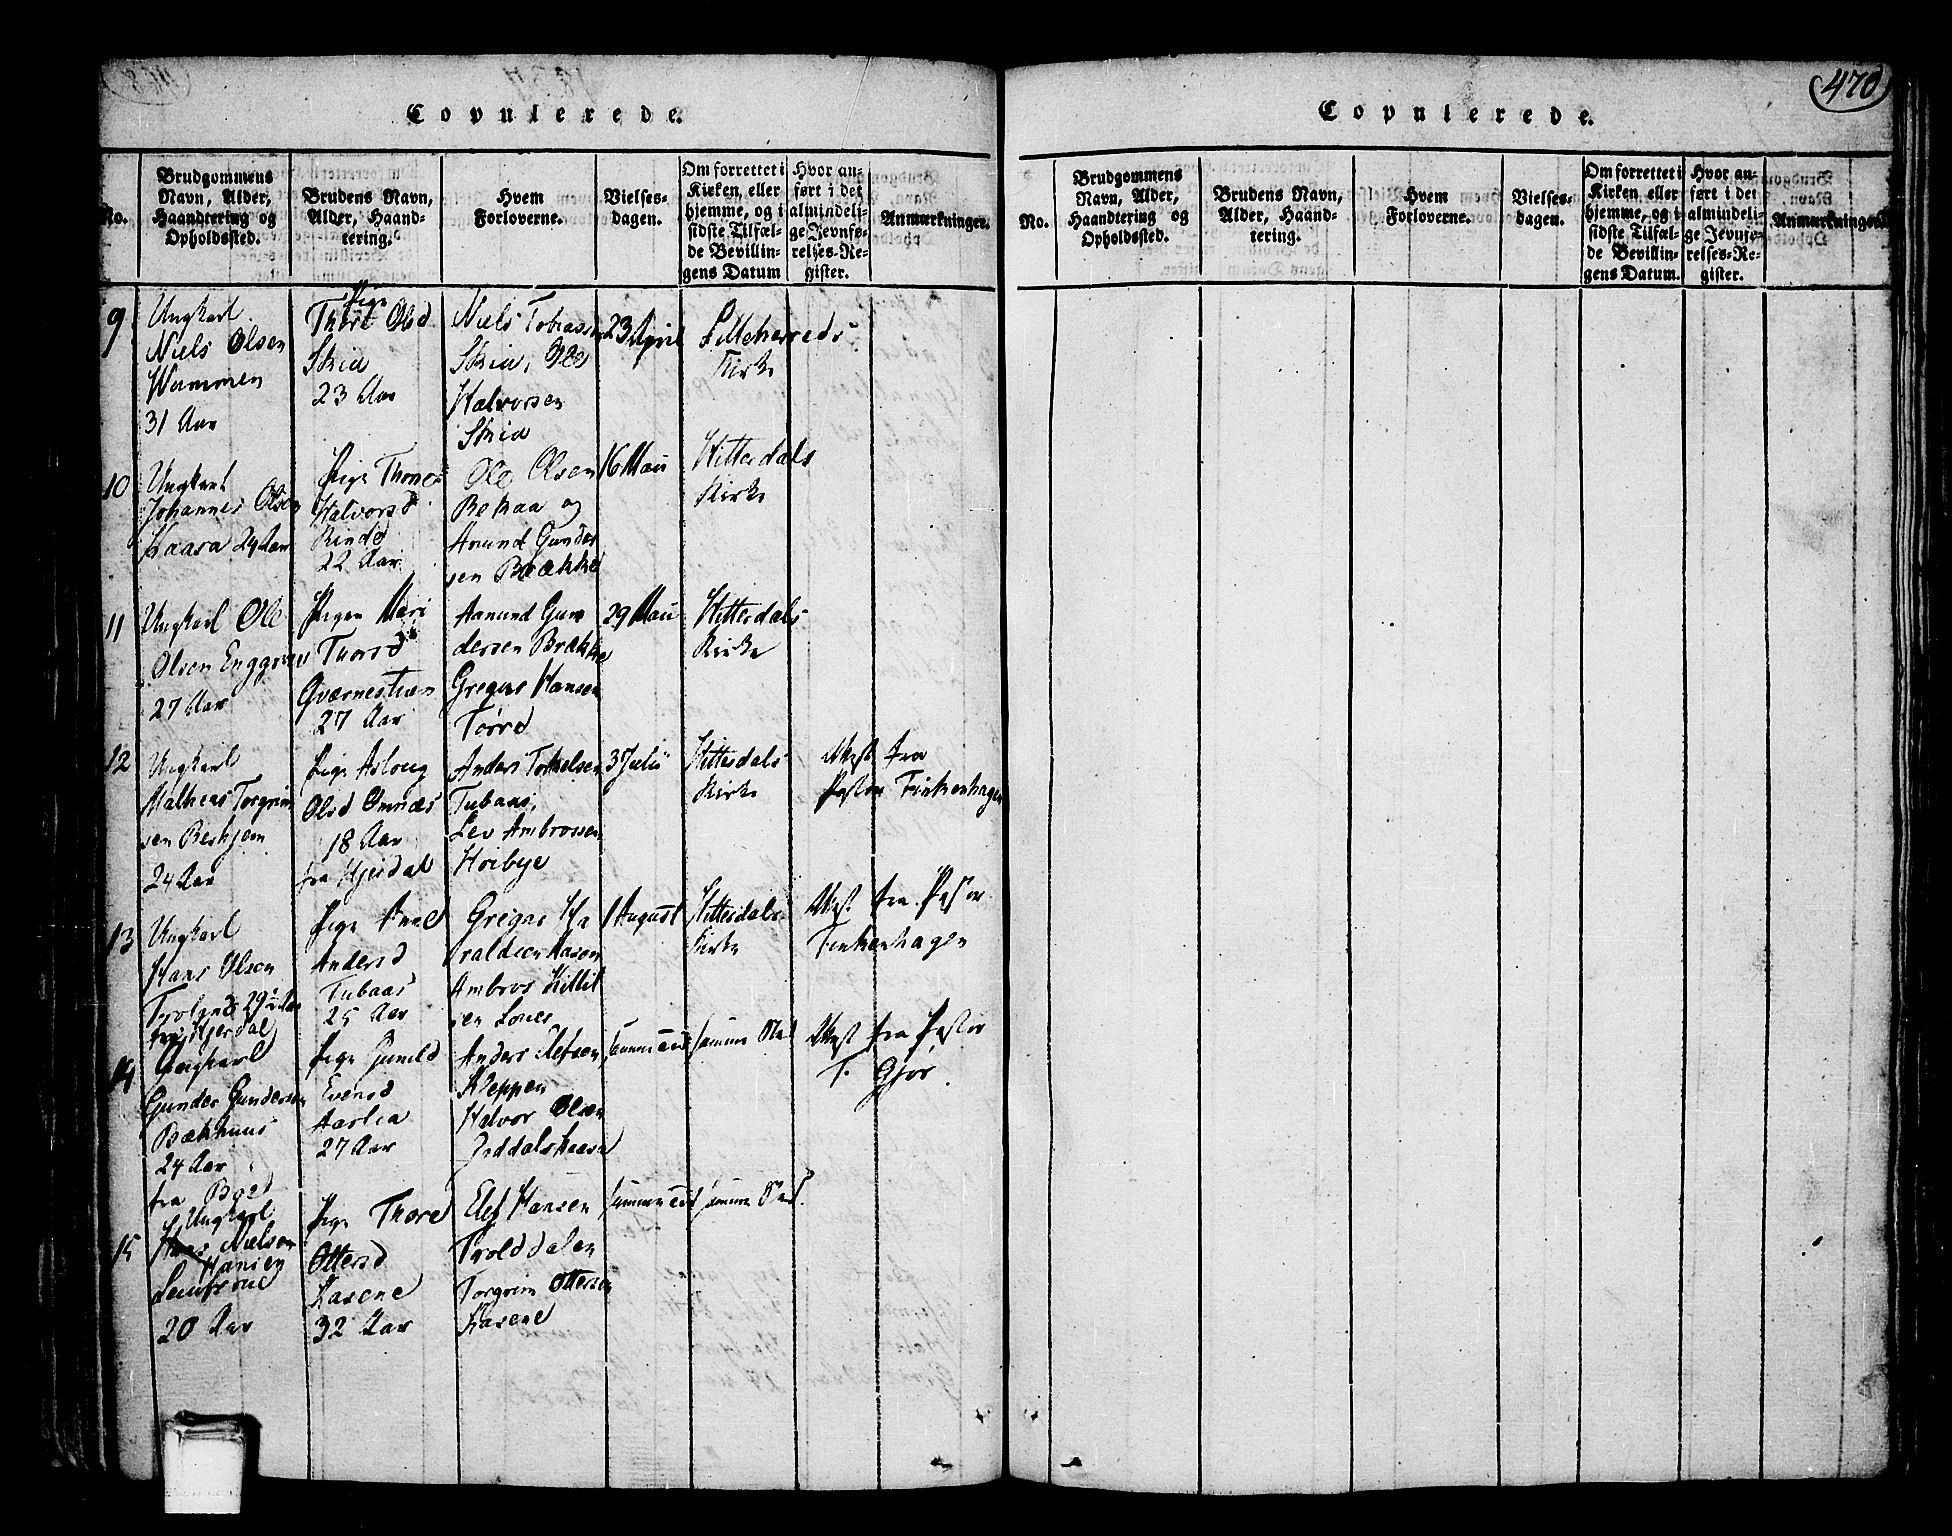 470
Copulerede.
No.
Brudgommens Navn, Alder, Haandtering og Opholdssted.
Brudens Navn, Alder, Haandtering.
Hvem Forloverne.
Vielsesdagen.
Om forrettet i Kirken eller hjemme, og i sidste Tilfælde Bevillingens Datum
Hvor anført i det almindelige Jevnførelses-Register.
Anmærkninger.
9
Ungkarl
Niels Olsen
31 Aar
Pige
Thore Olsd
Skia
23 Aar
Niels Tobiassen
Skia, Ole
Halvorsen
Skia
23 April
Lilleherreds
Kirke
10
Ungkarl
Johannes Olsen
Kaasa 24 Aar
Pige Thone
Halvorsd
Rinde
22 Aar
Ole Olsen
Bekaa og
Amund Gunder
sen Brække
16 Maii
Hitterdals
Kirke
11
Ungkarl Ole
Olsen
27 Aar
Pigen Mari
Thorsd
27 Aar
Aamund Gun
dersen Brække
Gregar Hansen
Tørre
29 Maii
Hitterdals
Kirke
12
Ungkarl
Matheas Torgrim
sen
24 Aar
Pige Asloug
Olsd Omnæs
18 Aar
fra Hjerdal
Anders Torkelsen
Tubaas,
Lev Ambrossen
Hoibye
3 Julii
Hitterdals
Kirke
Attest fra
Pastor Finkenhagen
13
Ungkarl
Hans Olsen
29 Aar
fra Hjerdal
Pige Anne
Andersd
Tubaas
25 Aar
Gregar Ha
raldsen
Ambros Kittil
sen Lones
1 August
Hitterdals
Kirke
Attest fra Pastor
Finkenhagen
14
Ungkarl
Gunder Gundersen
Bækhuus
24 Aar
fra Bøe
Pige Gunild
Evensd
Aaslia
27 Aar
Anders Olefsen
Kleppen
Halvor Olsen
samme Sted
Attest fra Pastor
F. Gjør.
15
Ungkarl
Hans Nielsen
Hansen
20 Aar
Pige Thore
Ottersd
Kasene
32 Aar
Elef Hansen
Trolddalen
Torgrim Ottersen
Kasene
samme Sted.
Copulerede.
No.
Brudgommens Navn, Alder, Haandtering og Opholdssted.
Brudens Navn, Alder, Haandtering.
Hvem Forloverne.
Vielsesdagen.
Om forrettet i Kirken eller hjemme, og i sidste Tilfælde Bevillingens Datum.
Hvor anført i det almindelige Jevnførelses-Register.
Anmærkninger.